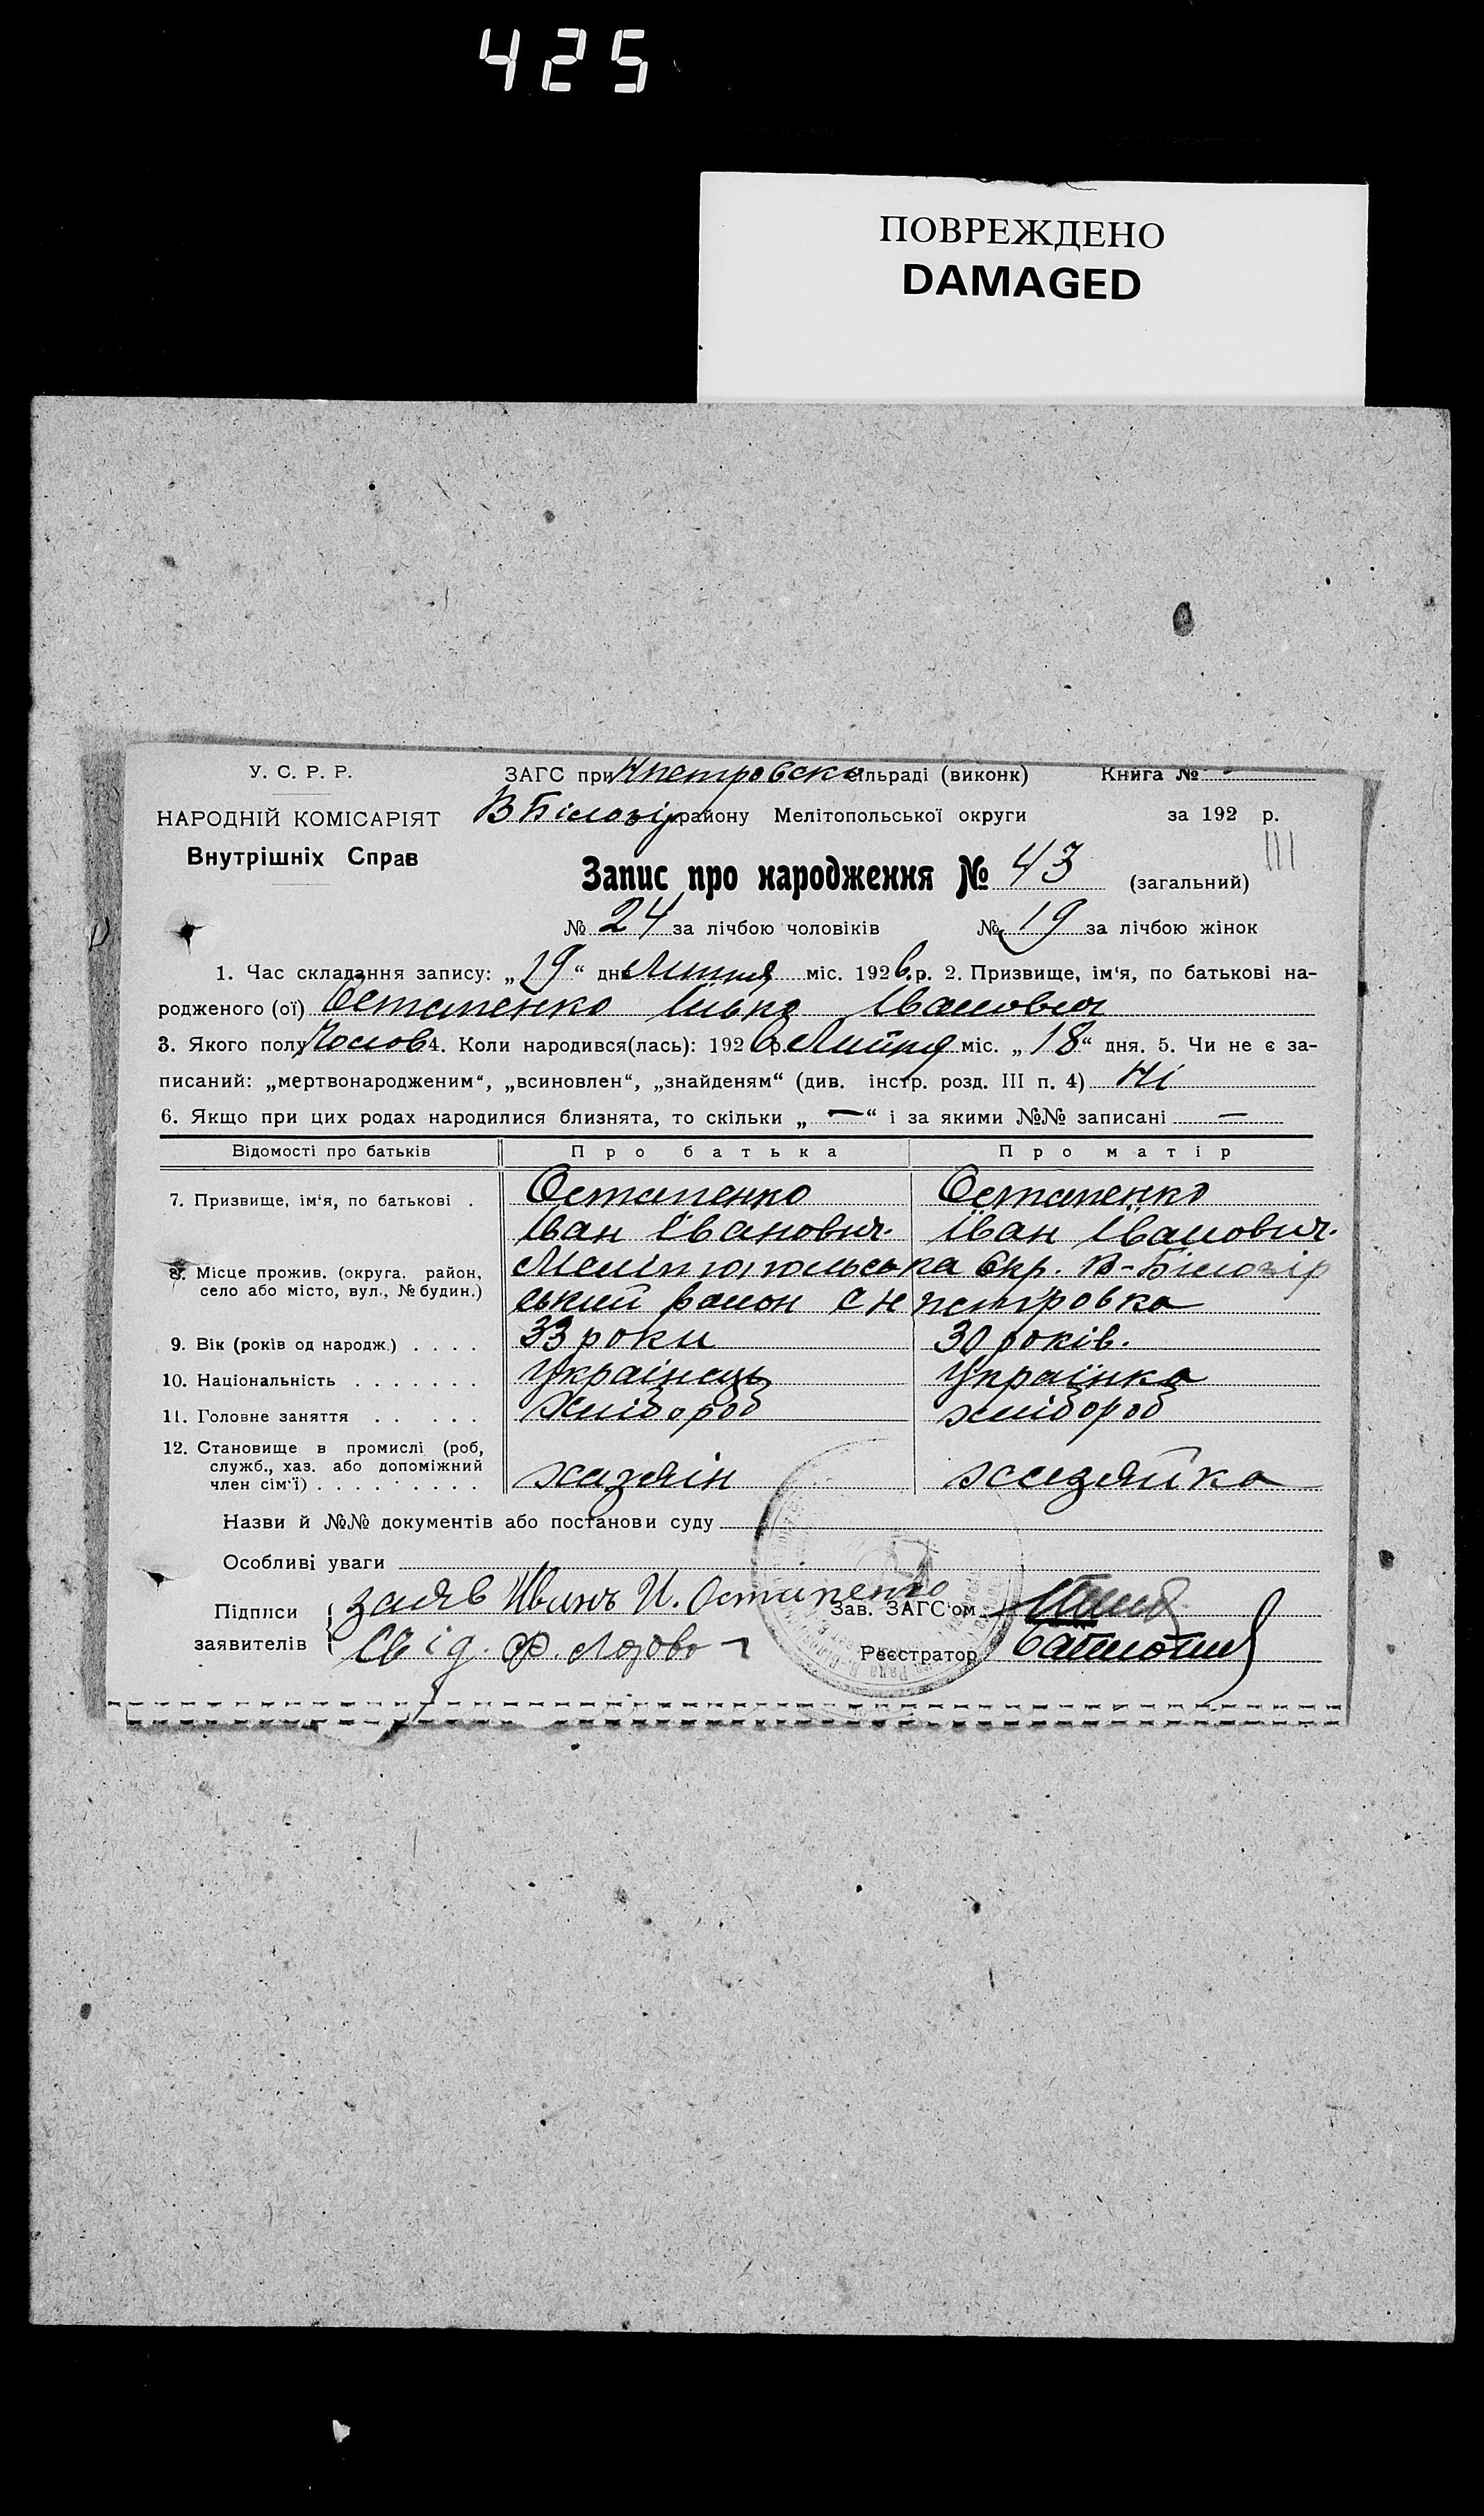 425
ПОВРЕЖДЕНО
DAMAGED
У. С. Р. Р. ЗАГС при Нпетровско сільраді (виконк) Книга № -
НАРОДНІЙ КОМІСАРІЯТ В Білозір району Мелітопольської округи за 192 р.
Внутрішніх Справ
Запис про народження № 43 (загальний)
№ 24 за лічбою чоловіків № 19 за лічбою жінок
1. Час складання запису: „19“ дня Липня міс. 1926 р. 2. Призвище, ім'я, по батькові на-
родженого (ої) Остапенко Ілько Іванович
3. Якого полу Чолов 4. Коли народився(лась): 1926 р. Липня міс. „18“ дня. 5. Чи не є за-
писаний: „мертвонародженим“, „всиновлен“, „знайденям“ (див. інстр. розд. III п. 4) Ні
6. Якщо при цих родах народилися близнята, то скільки „—“ і за якими №№ записані —
Відомості про батьків Про батька Про матір
7. Призвище, ім'я, по батькові . Остапенко Остапенко
Іван Іванович. Іван Іванович.
8. Місце прожив. (округа, район, Мелітопольська Окр. В-Білозір
село або місто, вул., № будин.) ський район с Н петровка
9. Вік (років од народж.) . . . . 33 роки 30 років.
10. Національність . . . . . . . Українець Українка
11. Головне заняття . . . . . Хлібороб хлібороб
12. Становище в промислі (роб,
служб., хаз. або допоміжний
член сім'ї) . . . . . . . . хазяїн хазяйка
Назви й №№ документів або постанови суду
Особливі уваги
Підписи заяв Иванъ И. Остапенко Зав. ЗАГС'ом
заявителів Свід. Ф. Лозово Реєстратор